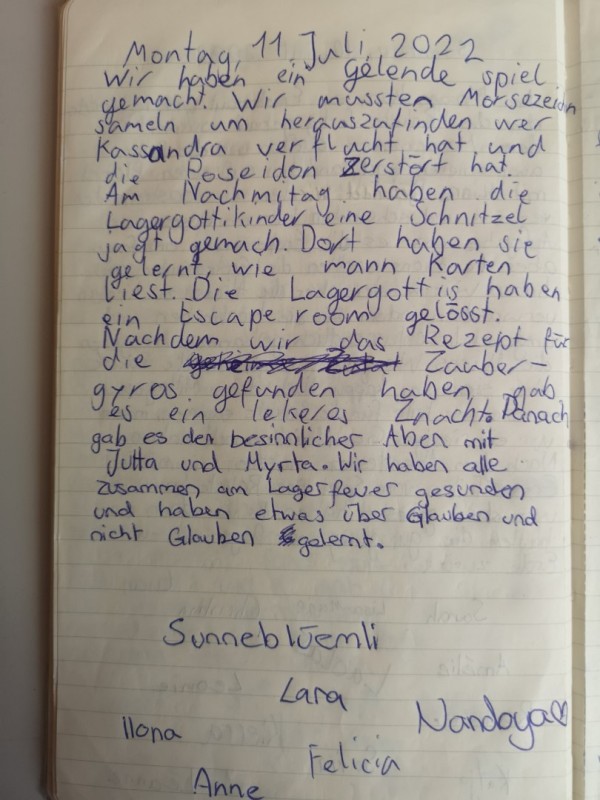 Montag, 11 Juli, 2022
Wir haben ein gelende spiel
gemacht. Wir mussten Morsezeichn
sameln um herauszufinden wer
Kassandra verflucht hat und
die Poseidon Zerstört hat.
Am Nachmitag haben die
Lagergottikinder eine Schnitzel
jagt gemach. Dort haben sie
gelernt, wie mann Karten
liest. Die Lagergottis haben
ein Escape room gelösst.
Nachdem wir das Rezept für
die Zauber-
gyros gefunden haben gab
es ein lekeres Znacht. Danach
gab es den besinnlicher Aben mit
Jutta und Myrta. Wir haben alle
zusammen am Lagerfeuer gesunden
und haben etwas über Glauben und
nicht Glauben gelernt.
Sunneblüemli
Lara
Nandaya♡
Ilona
Felicia
Anne